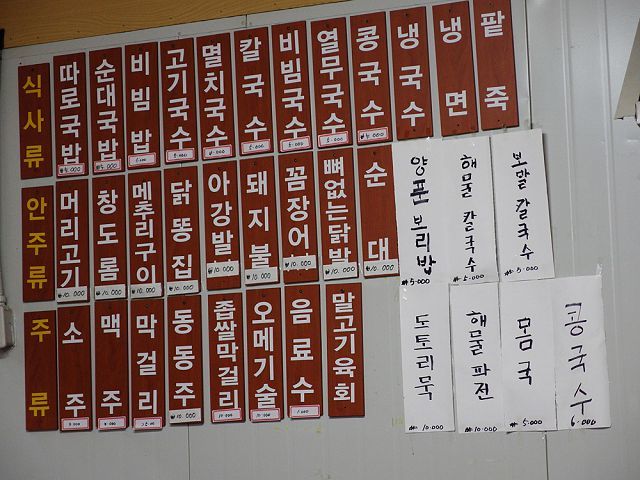 식사류
따로국밥 ₩5.000
순대국밥 ₩5.000
비빔밥
고기국수 5.000
멸치국수
칼국수 5.000
비빔국수 5.000
열무국수 5.000
콩국수 ₩5.000
냉국수
냉면
팥죽
안주류
머리고기 ₩10.000
창도롬 ₩10.000
메추리구이 ₩10.000
닭똥집 ₩10.000
아강발 ₩10.000
돼지불 ₩10.000
꼼장어 ₩10.000
뼈없는닭발 ₩10.000
순대 ₩10.000
양푼보리밥 ₩5.000
해물칼국수 ₩5.000
보말칼국수 ₩5.000
주류
소주
맥주
막걸리
동동주 ₩10.000
좁쌀막걸리 10.000
오메기술 10.000
음료수 1.000
말고기육회
도토리묵 ₩10.000
해물파전 ₩10.000
몸국 ₩5.000
콩국수 6.000